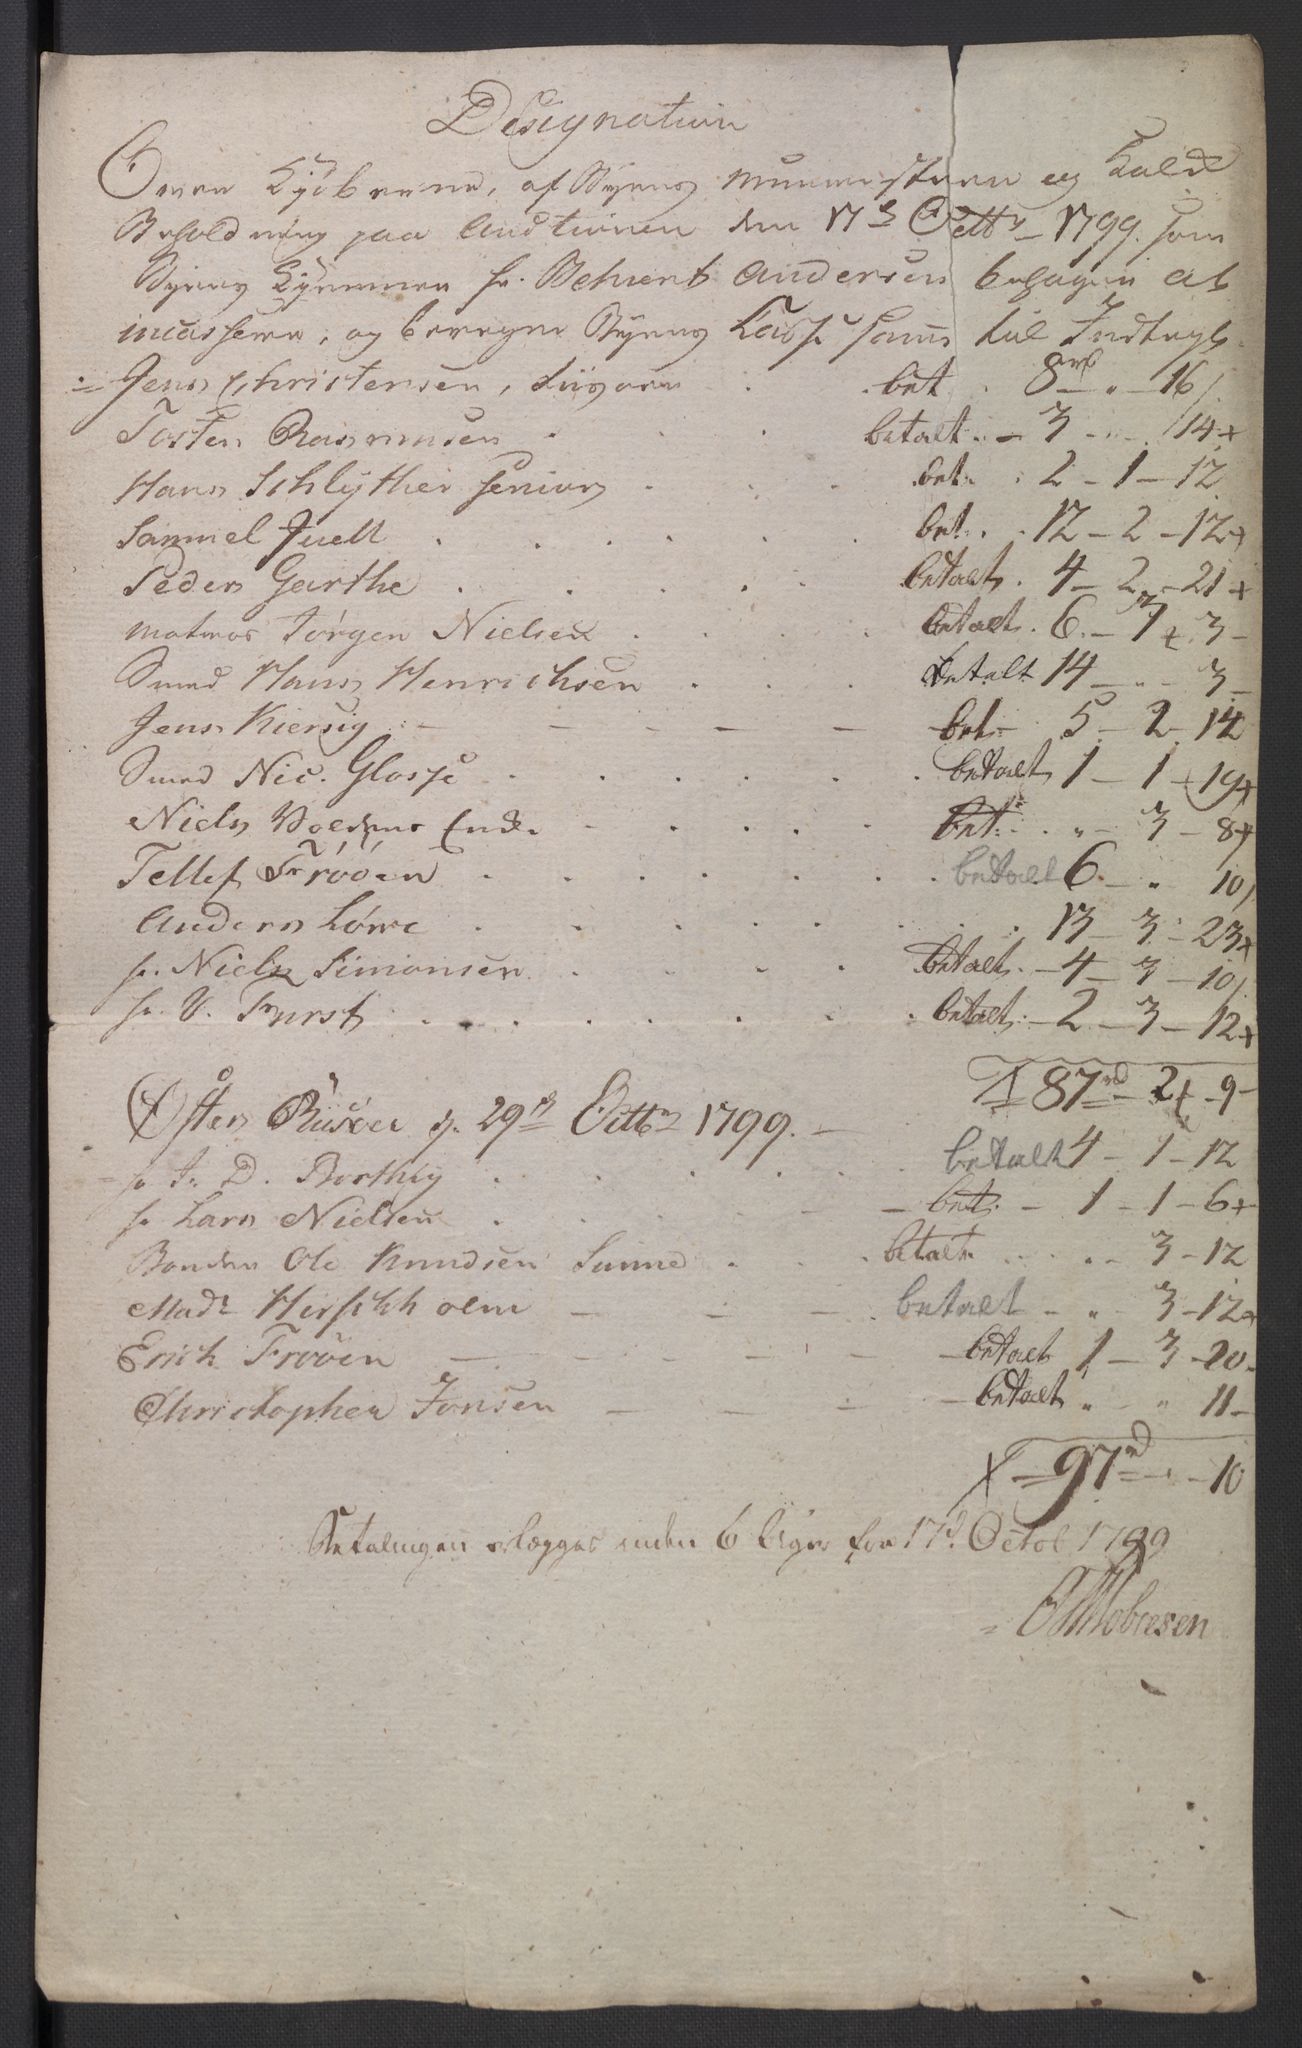 Designation
Over Kjöberne, af Byens muursteen og Kalk
Beholdning paa Auctionen den 17d Octbr 1799. som
Byens Kjemner hr. Behrent Andersen behager at
incassere, og beregne Byens Casse samme til Indtægt.
Jens Christensen, . . bet . 8rd " 16
Tosten Rasmusen . . . betalt . - 3 - " - 14 +
Hans Schlÿther senior . . . bet: . 2 - 1 - 12
Samuel Juell . . . . . . bet: . . 12 - 2 - 12 +
Peder Garthe . . . . . betalt . 4 - 2 - 21 +
matros Jörgen Nielsen . . . . betalt . 6 . - 3 -
Smed Hans Henrichsen . . . betalt 14 - " - 3 -
Jens Kiersig . - - - - - bet - 5 - 2 - 14
Smed Nic. Glosse . . . . . . betalt 1 - 1 - 19 +
Niels - . . . . bet: . . " - 3 - 8 +
Tellef Fröoen . . . . . . . betalt 6 - " 10
Anders Löwe . . . . . . . . 13 - 3 - 23 +
hr. Niels Simonsen . . . . betalt . - 4 - 3 - 10
hr. V. Furst . . . . . . . . betalt: - 2 - 3 - 12 +
87rd - 2 - 9 -
Efter d. 29d Octbr 1799. -
hr J. D. Borthig . . . . . . betalt 4 - 1 - 12
hr Lars Nielsen . . . . - - bet: - 1 - 1 - 6 +
Bonden Ole Knudsen Sunne . . . betalt . . " - 3 - 12
Made Hirschholm - - - betalt - " - 3 - 12 +
Erich Frooen - - - - - - betalt 1 - 3 - 20 -
Christopher Jonsen - - - - betalt " - " 11 -
97rd - " - 10
Betalingen erlægges inden 6 Uger fra 17d. Octob 1799